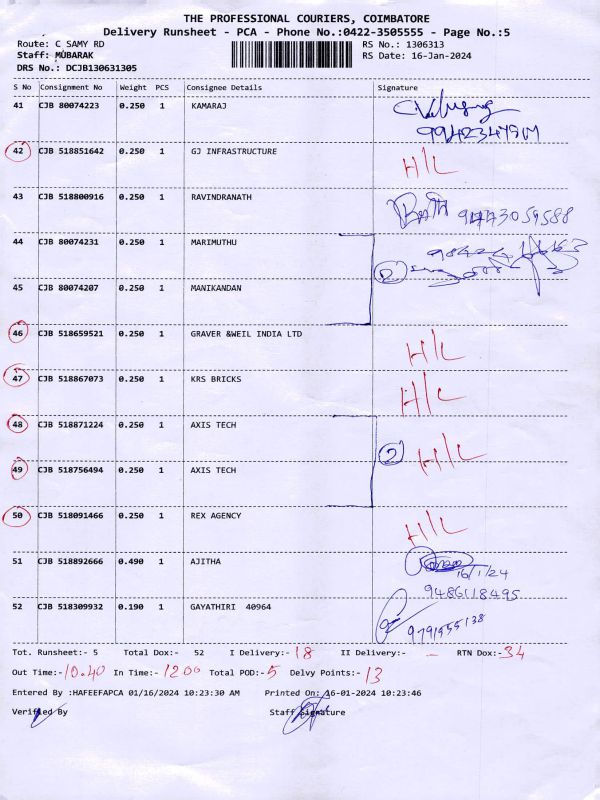 THE PROFESSIONAL COURIERS, COIMBATORE
Delivery Runsheet - PCA - Phone No.:0422-3505555 - Page No.:5
Route: C SAMY RD RS No.: 1306313
Staff: MUBARAK RS Date: 16-Jan-2024
DRS No.: DCJB130631305
S No Consignment No Weight PCS Consignee Details Signature
41 CJB 80074223 0.250 1 KAMARAJ
42 CJB 518851642 0.250 1 GJ INFRASTRUCTURE H/L
43 CJB 518800916 0.250 1 RAVINDRANATH 9443059588
44 CJB 80074231 0.250 1 MARIMUTHU
45 CJB 80074207 0.250 1 MANIKANDAN
46 CJB 518659521 0.250 1 GRAVER &WEIL INDIA LTD H/L
47 CJB 518867073 0.250 1 KRS BRICKS H/L
48 CJB 518871224 0.250 1 AXIS TECH
2 H/L
49 CJB 518756494 0.250 1 AXIS TECH
50 CJB 518091466 0.250 1 REX AGENCY H/L
51 CJB 518892666 0.490 1 AJITHA
16/1/24
9486118495
52 CJB 518309932 0.190 1 GAYATHIRI 40964
9791555138
Tot. Runsheet:- 5 Total Dox:- 52 I Delivery:- 18 II Delivery:- - RTN Dox:- 34
Out Time:- 10.40 In Time:- 1200 Total POD:- 5 Delvy Points:- 13
Entered By :HAFEEFAPCA 01/16/2024 10:23:30 AM Printed On: 16-01-2024 10:23:46
Verified By Staff Signature